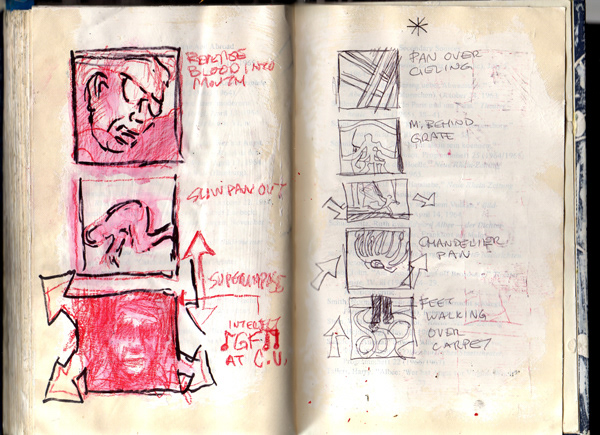 REVERSE
BLOOD INTO
MOUTH
SLOW PAN OUT
SUPERIMPOSE
MGFM
AT C.U.
*
PAN OVER
CIELING
M. BEHIND
GRATE
CHANDELIER
PAN
FEET
WALKING
OVER
CARPET